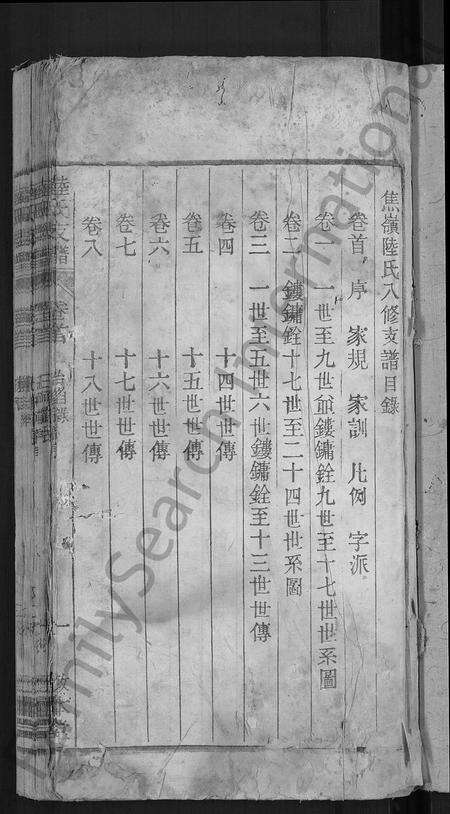 焦嶺陸氏八修支譜目錄
卷首 序 家規 家訓 凡例 字派
卷一 一世至九世爺鏤鏞銓九世至十七世世系圖
卷二 鏤鏞銓十七世至二十四世世系圖
卷三 一世至五世六世鏤鏞銓至十三世世傳
卷四 十四世世傳
卷五 十五世世傳
卷六 十六世世傳
卷七 十七世世傳
卷八 十八世世傳
陸氏支譜 卷首 錄 一
FamilySearch International